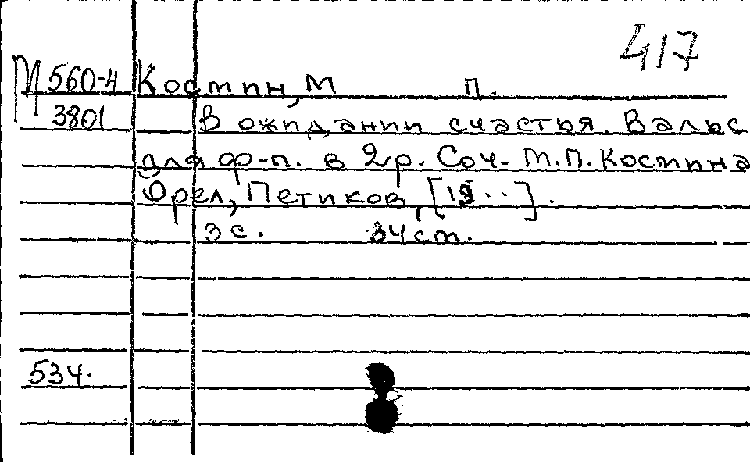 417
М 560-4 Костин, М П.
3801 В ожидании счастья. Вальс
для ф-п. в 2 р. Соч. М.П. Костина
Орел, Петиков, [19..].
3 с. 34 см.
534.